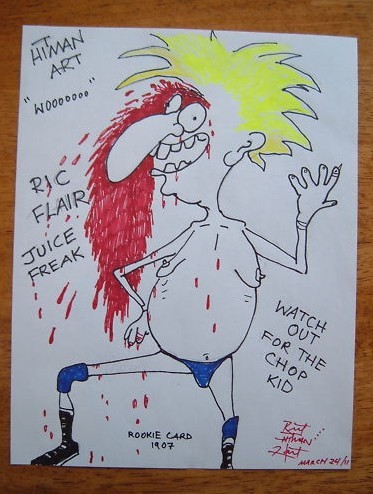 HITMAN
ART
"WOOOOOOO"
RIC
FLAIR
JUICE
FREAK
WATCH
OUT
FOR THE
CHOP
KID
ROOKIE CARD
1907
Bret
HITMAN
Hart
MARCH 24/11